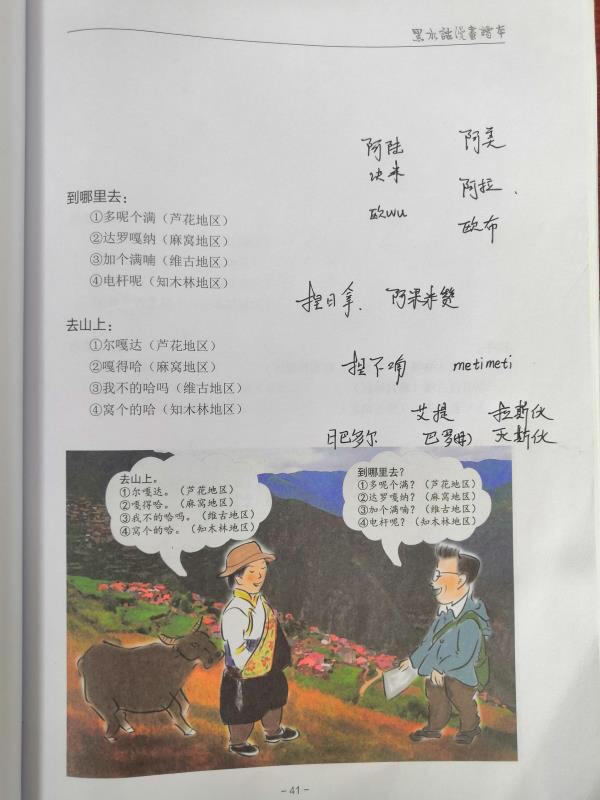 黑水话漫画读本
阿陆 阿美
决米 阿拉、
欧wu 欧布
到哪里去：
①多呢个满（芦花地区）
②达罗嘎纳（麻窝地区）
③加个满喃（维古地区）
④电杆呢（知木林地区）
捏日拿、阿果米赞
去山上：
①尔嘎达（芦花地区）
②嘎得哈（麻窝地区）
③我不的哈吗（维古地区）
④窝个的哈（知木林地区）
捏不确 metimeti
艾提 拉斯伙
日巴多尔 巴罗姆 天斯伙
去山上。
①尔嘎达。（芦花地区）
②嘎得哈。（麻窝地区）
③我不的哈吗。（维古地区）
④窝个的哈。（知木林地区）
到哪里去？
①多呢个满？（芦花地区）
②达罗嘎纳？（麻窝地区）
③加个满喃？（维古地区）
④电杆呢？（知木林地区）
- 41 -